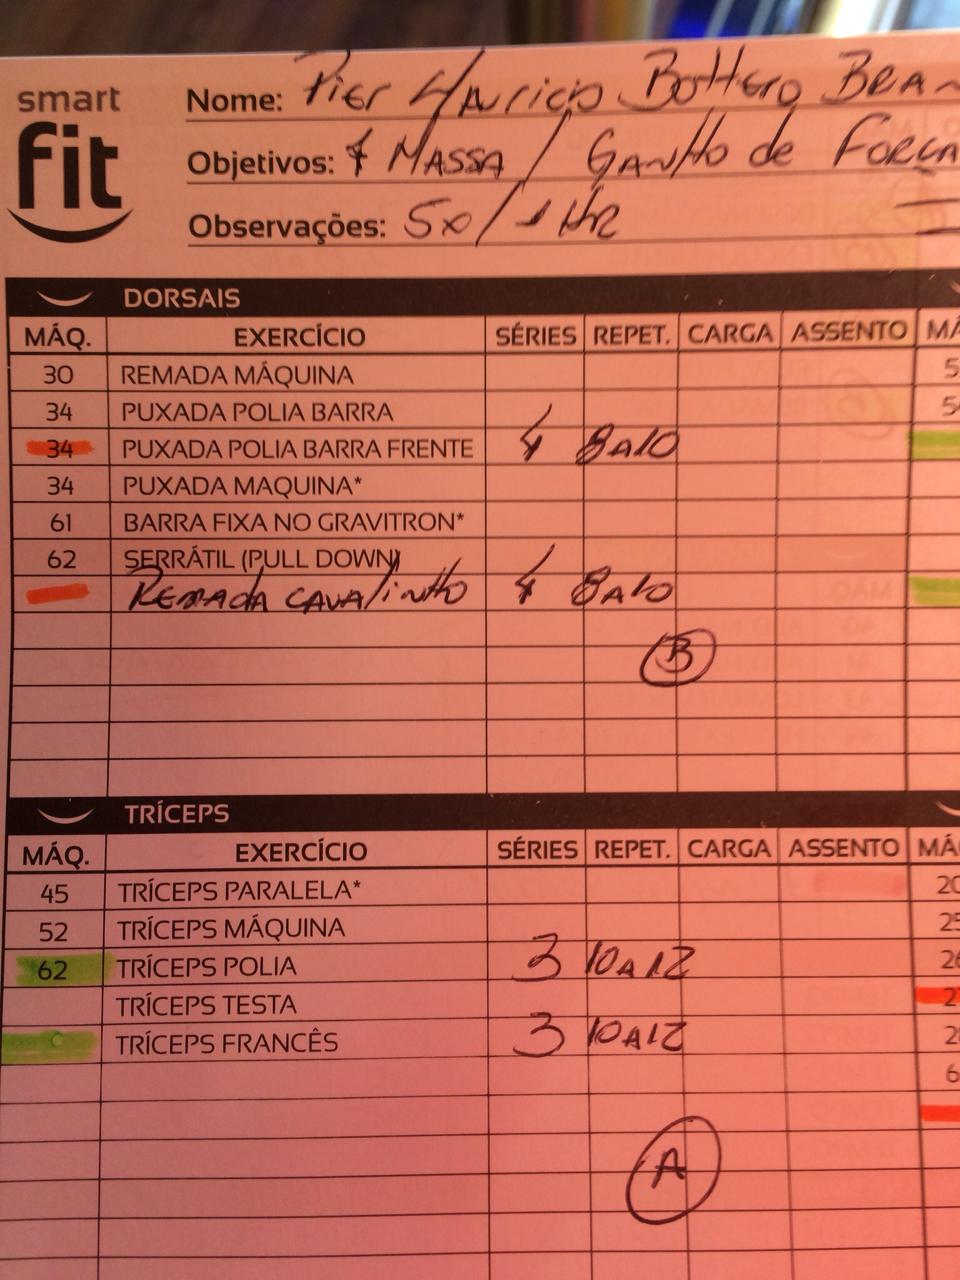 smart
fit
Nome: Pier Mauricio Bottero Bran
Objetivos: + MASSA / GANHO de FORÇA
Observações: 5x / 1 HR
DORSAIS
MÁQ. EXERCÍCIO SÉRIES REPET. CARGA ASSENTO MÁ
30 REMADA MÁQUINA 5
34 PUXADA POLIA BARRA 54
34 PUXADA POLIA BARRA FRENTE 4 8 A 10
34 PUXADA MAQUINA*
61 BARRA FIXA NO GRAVITRON*
62 SERRÁTIL (PULL DOWN)
REMADA CAVALINHO 4 8 A 10
B
TRÍCEPS
MÁQ. EXERCÍCIO SÉRIES REPET. CARGA ASSENTO MÁ
45 TRÍCEPS PARALELA* 20
52 TRÍCEPS MÁQUINA 25
62 TRÍCEPS POLIA 3 10 A 12 26
TRÍCEPS TESTA 2
TRÍCEPS FRANCÊS 3 10 A 12 28
6
A